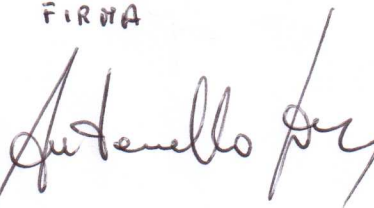 FIRMA
Antonello